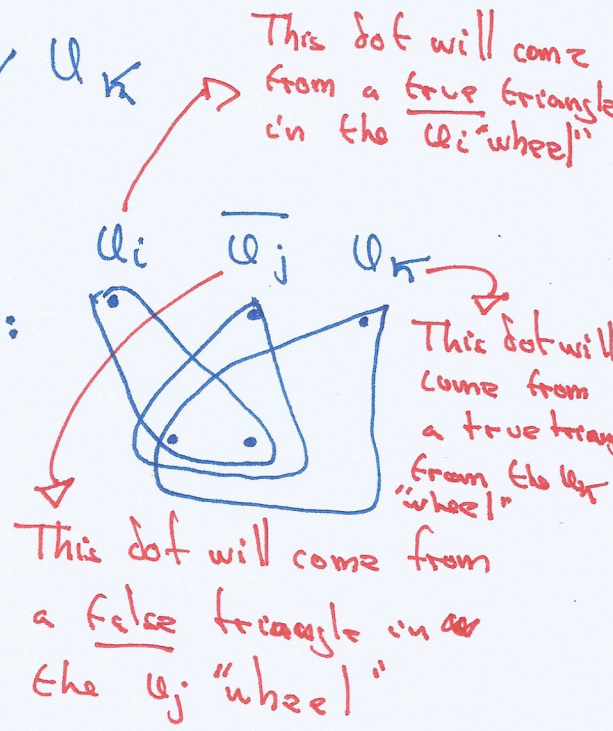 U_K
This dot will come
from a true triangle
in the U_i "wheel"
U_i U̅_j U_K
:
This dot will
come from
a true triang
from the U_K
"wheel"
This dot will come from
a false triangle in
the U_j "wheel"